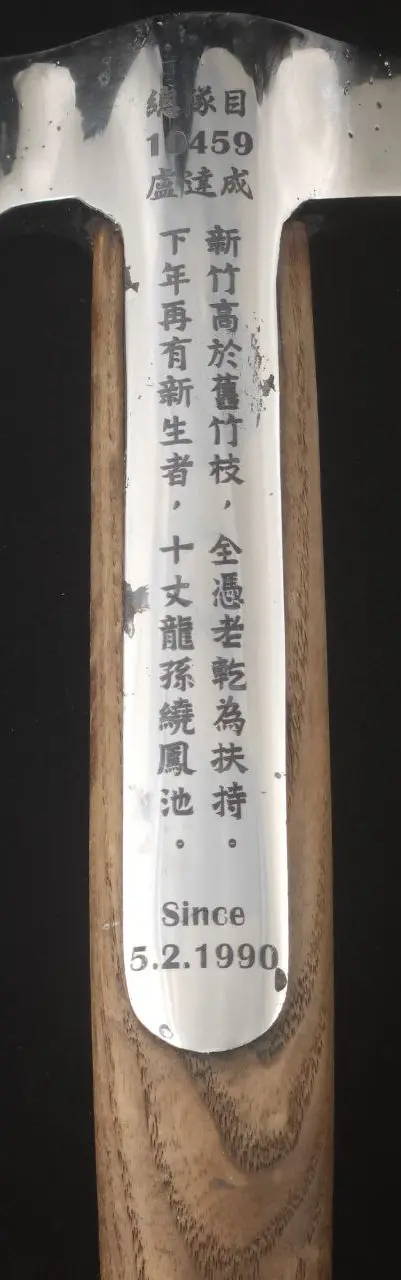 總隊目
10459
盧達成
新竹高於舊竹枝，全憑老乾為扶持．
下年再有新生者，十丈龍孫繞鳳池．
Since
5.2.1990